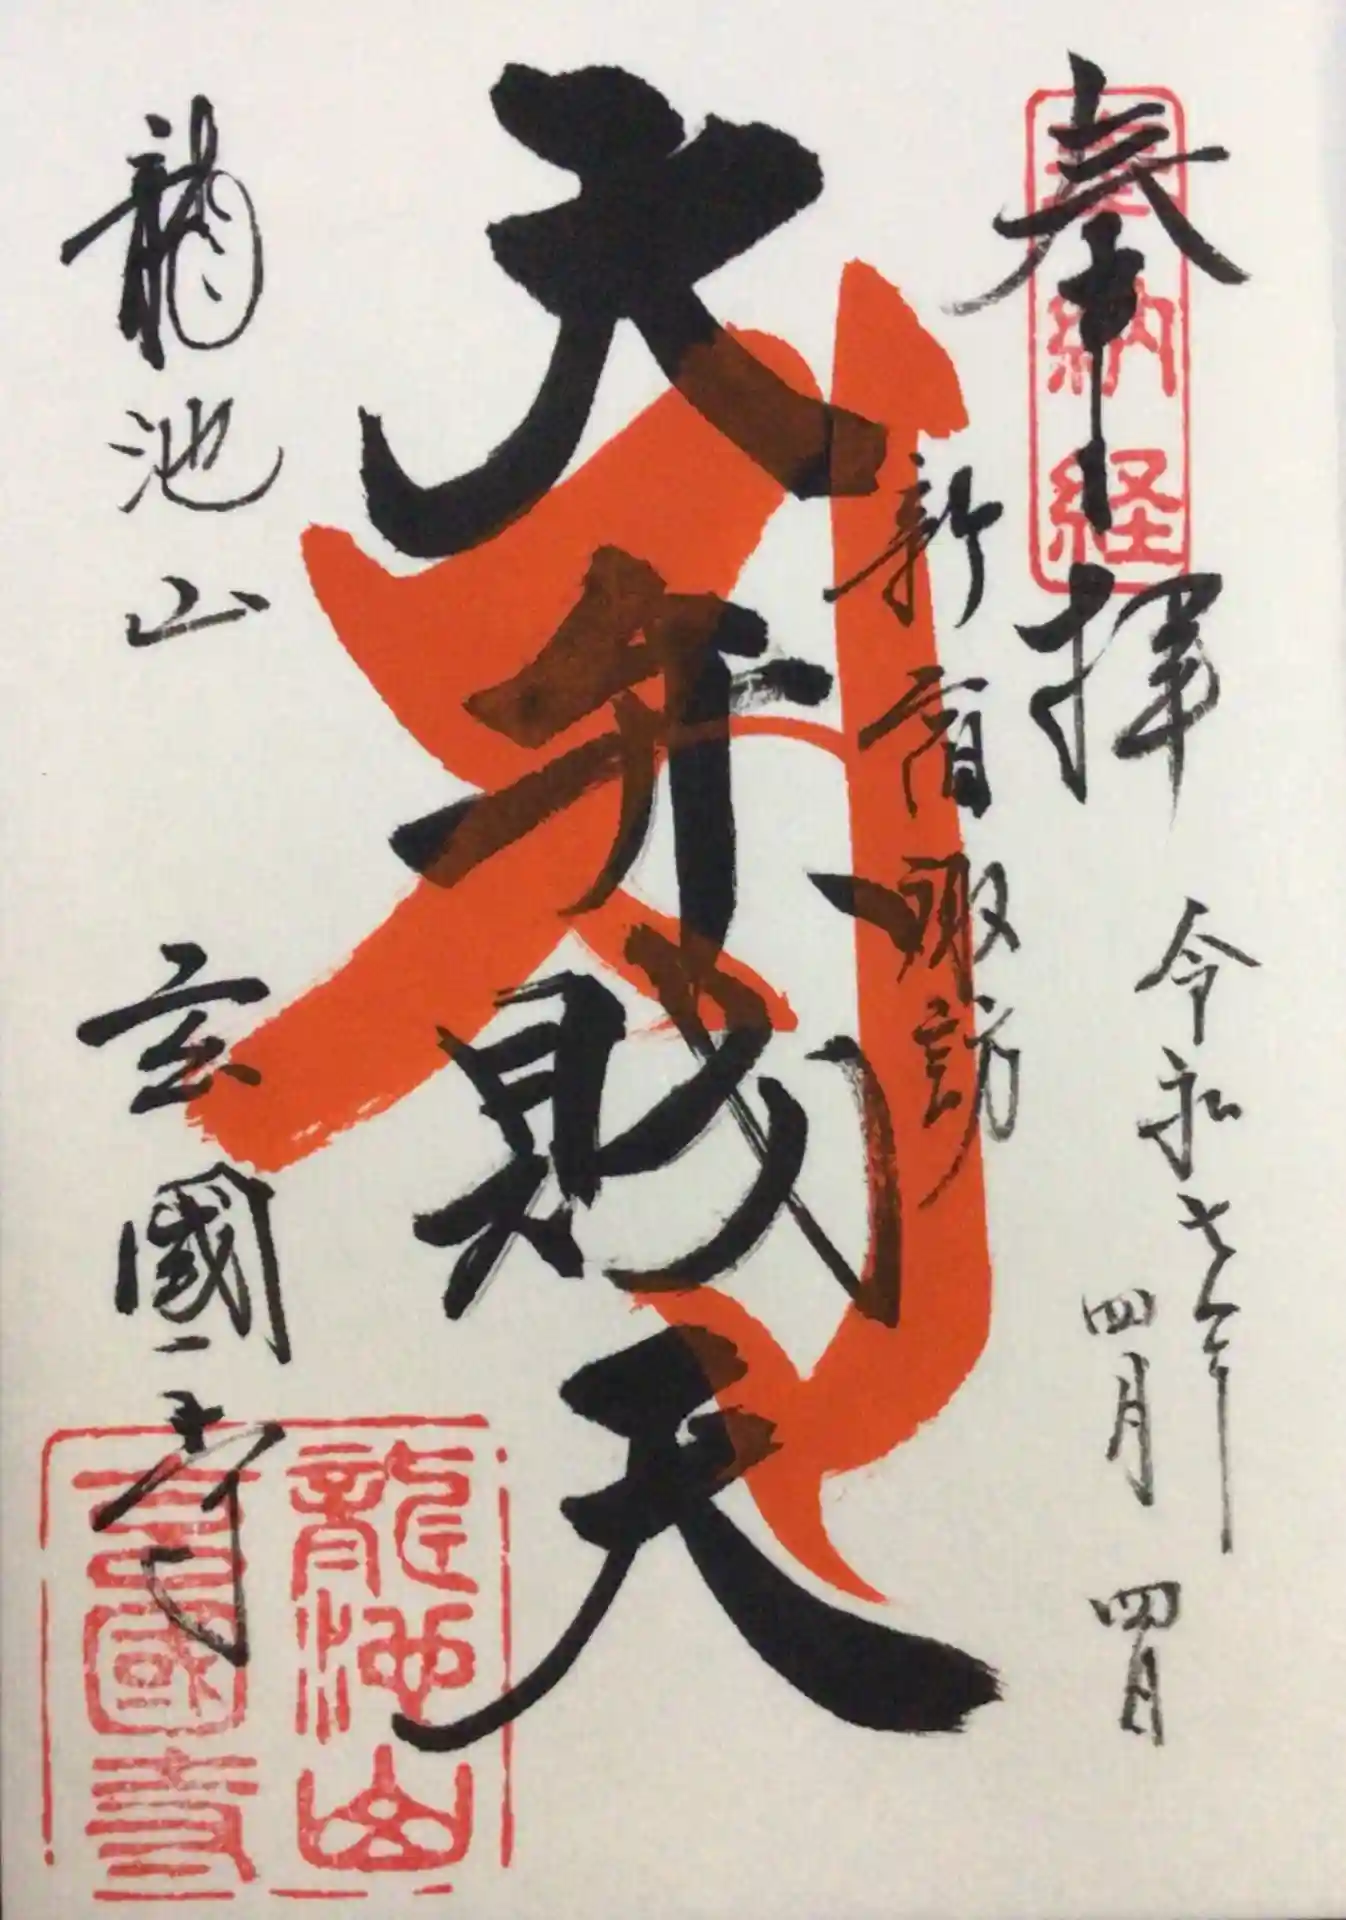 奉拝
奉納経
令和七年
四月四日
新宿諏訪
大弁財天
龍池山
玄國寺
龍池山
玄國寺